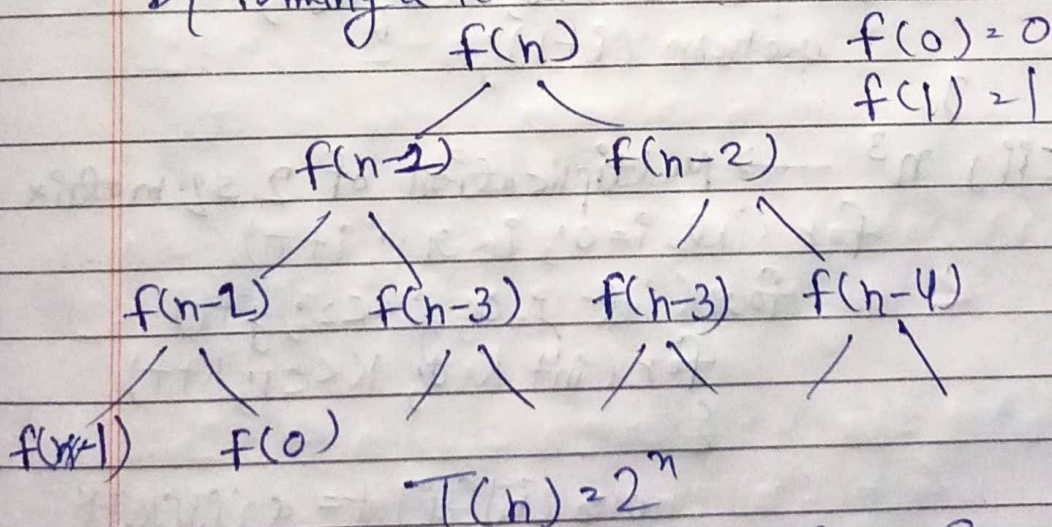 f(n) f(0) = 0
f(1) = 1
f(n-1) f(n-2)
f(n-2) f(n-3) f(n-3) f(n-4)
f(1) f(0)
T(n) = 2^n